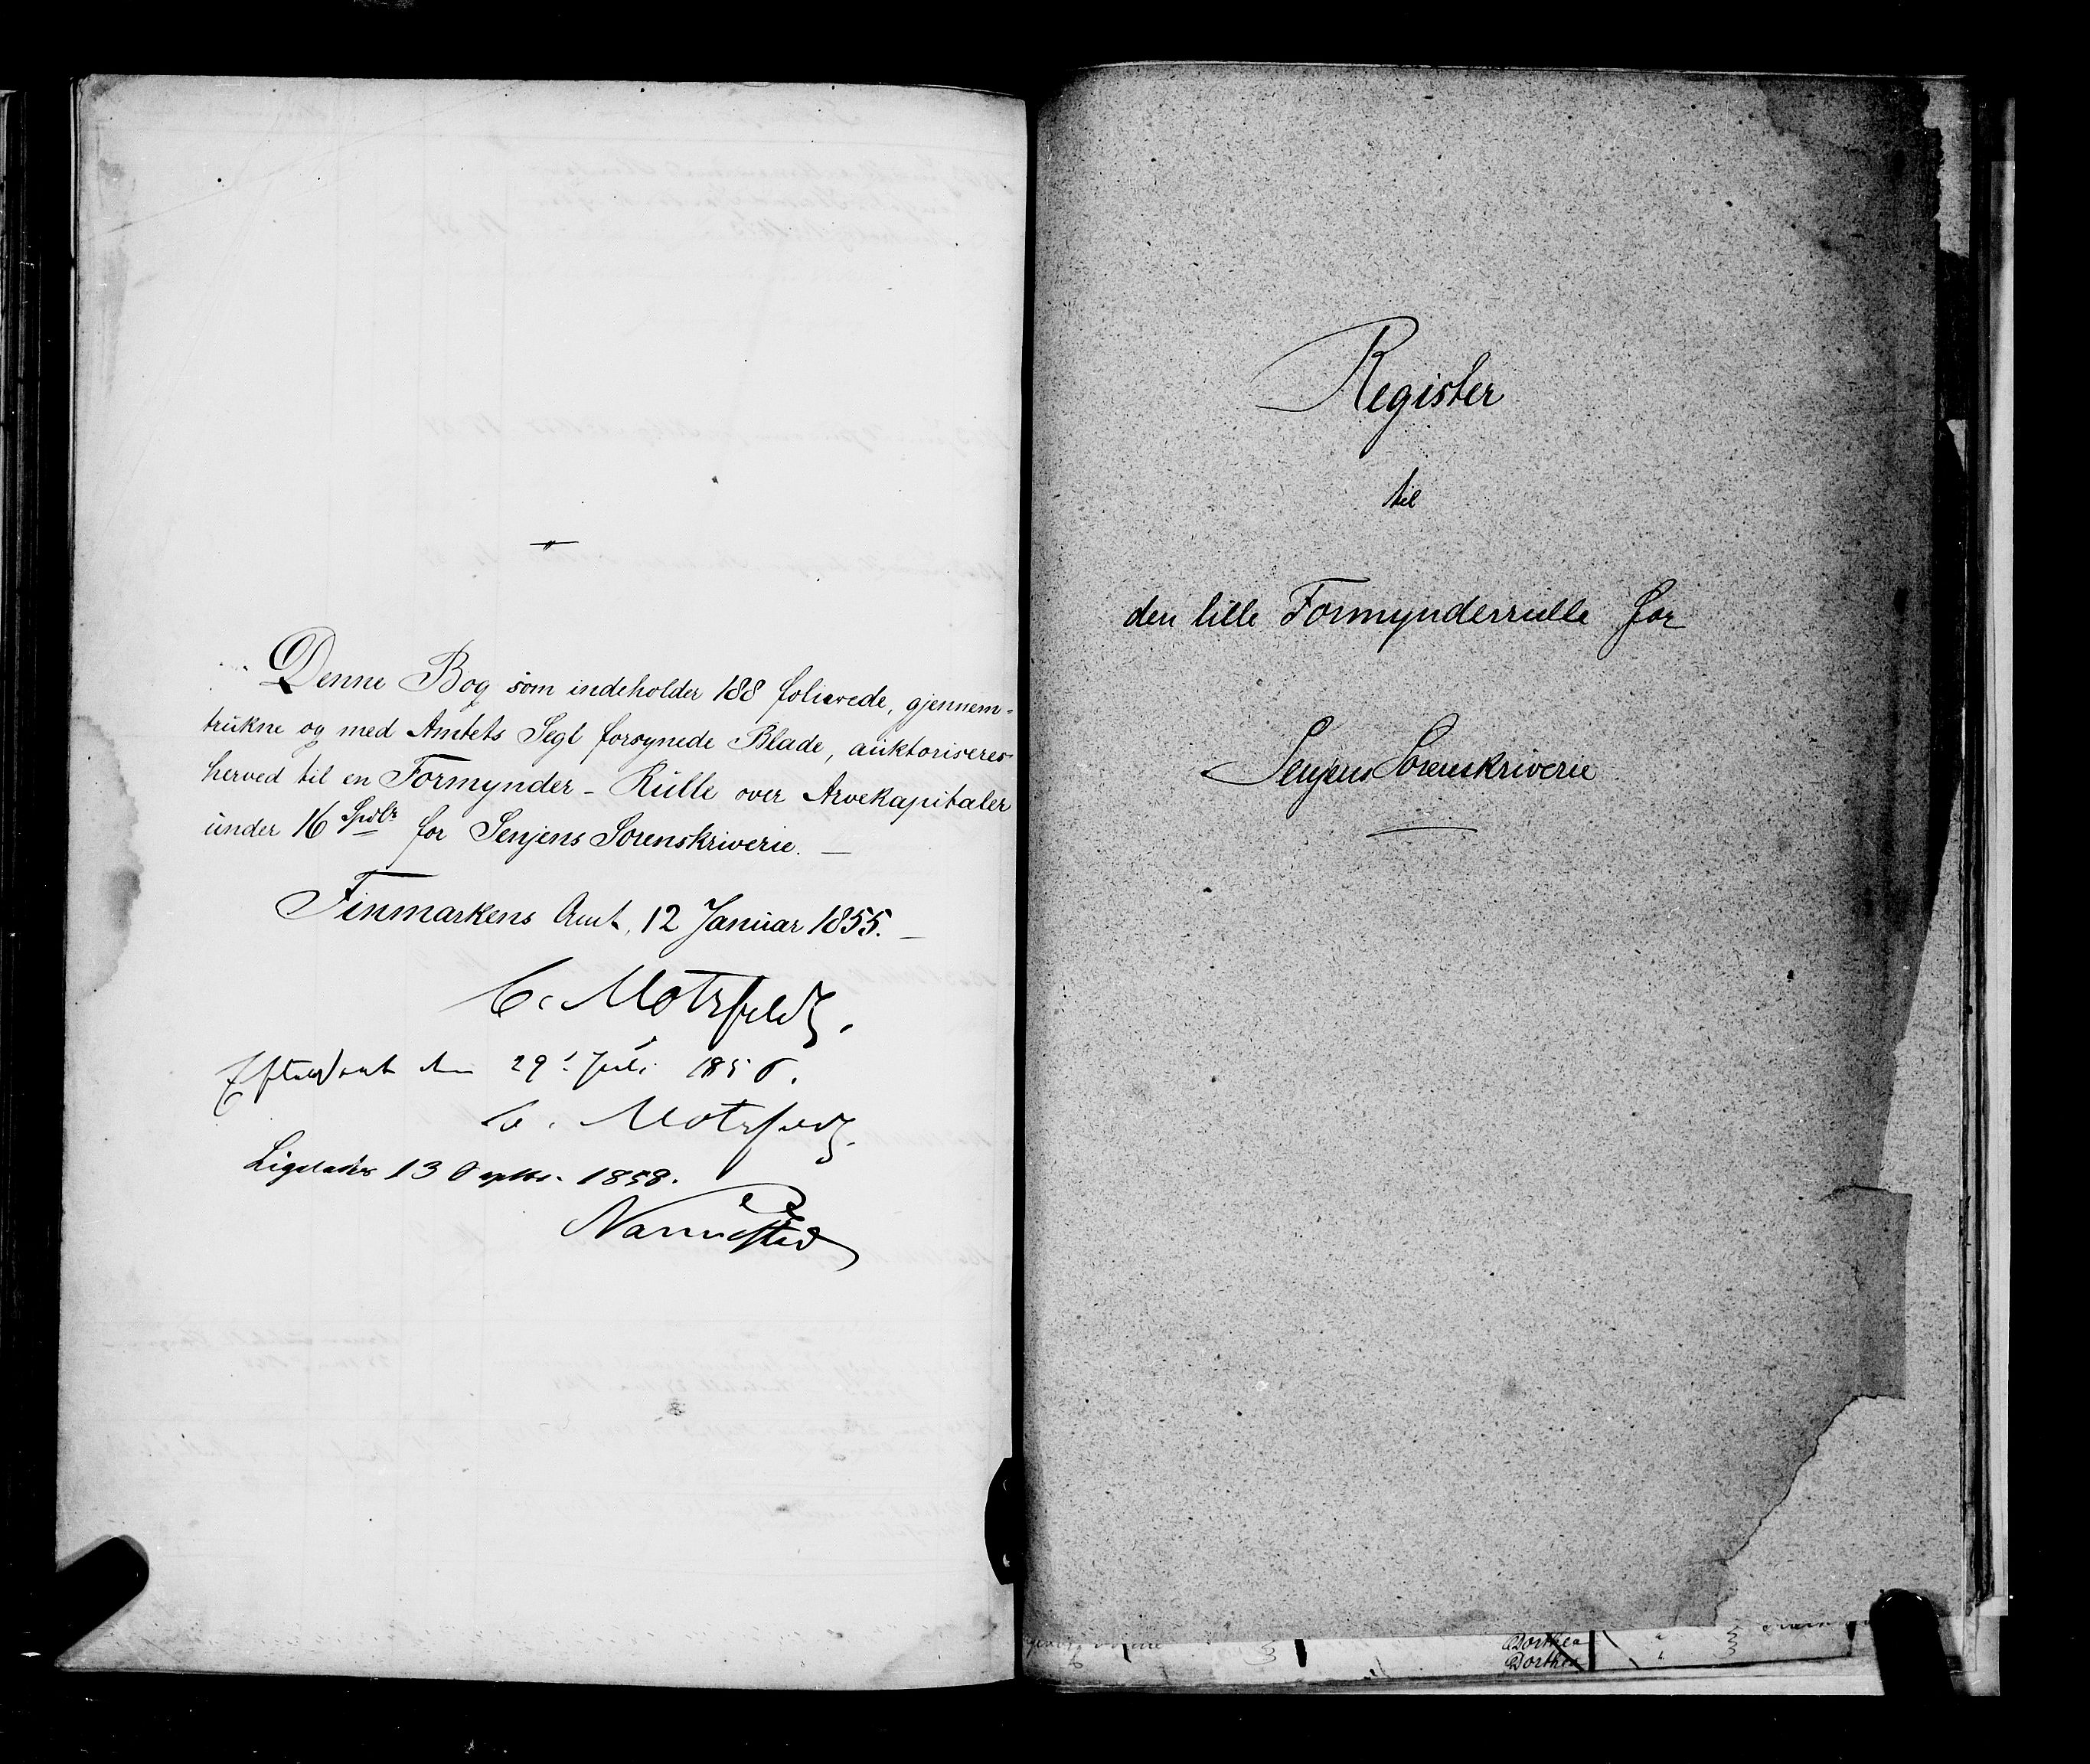 Denne Bog som indeholder 188 folierede, gjennem-
trukne og med Amtets Segl forsynede Blade, auktoriseres
herved til en Formynder-Rulle over Arvekapitaler
under 16 Spdlr for Senjens Sorenskriverie. —
Finmarkens Amt, 12 Januar 1855. —
C. Motzfeldt.
Efterseet den 29' Juli 1856.
C. Motzfeldt.
Ligeledes 13 Septbr. 1858.
Nannestad
Register
til
den lille Formynderrulle for
Senjens Sorenskriverie
Dorthea
Dorthea